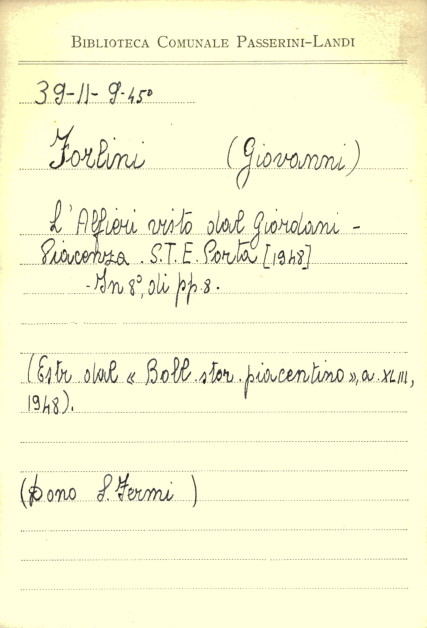 BIBLIOTECA COMUNALE PASSERINI-LANDI
39-11-9-45º
Forlini (Giovanni)
L'Alfieri visto dal Giordani -
Piacenza. S.T.E. Porta [1948]
- In 8º, di pp. 8.
(Estr. dal « Boll. stor. piacentino », a. XLIII,
1948).
(Dono S. Fermi )